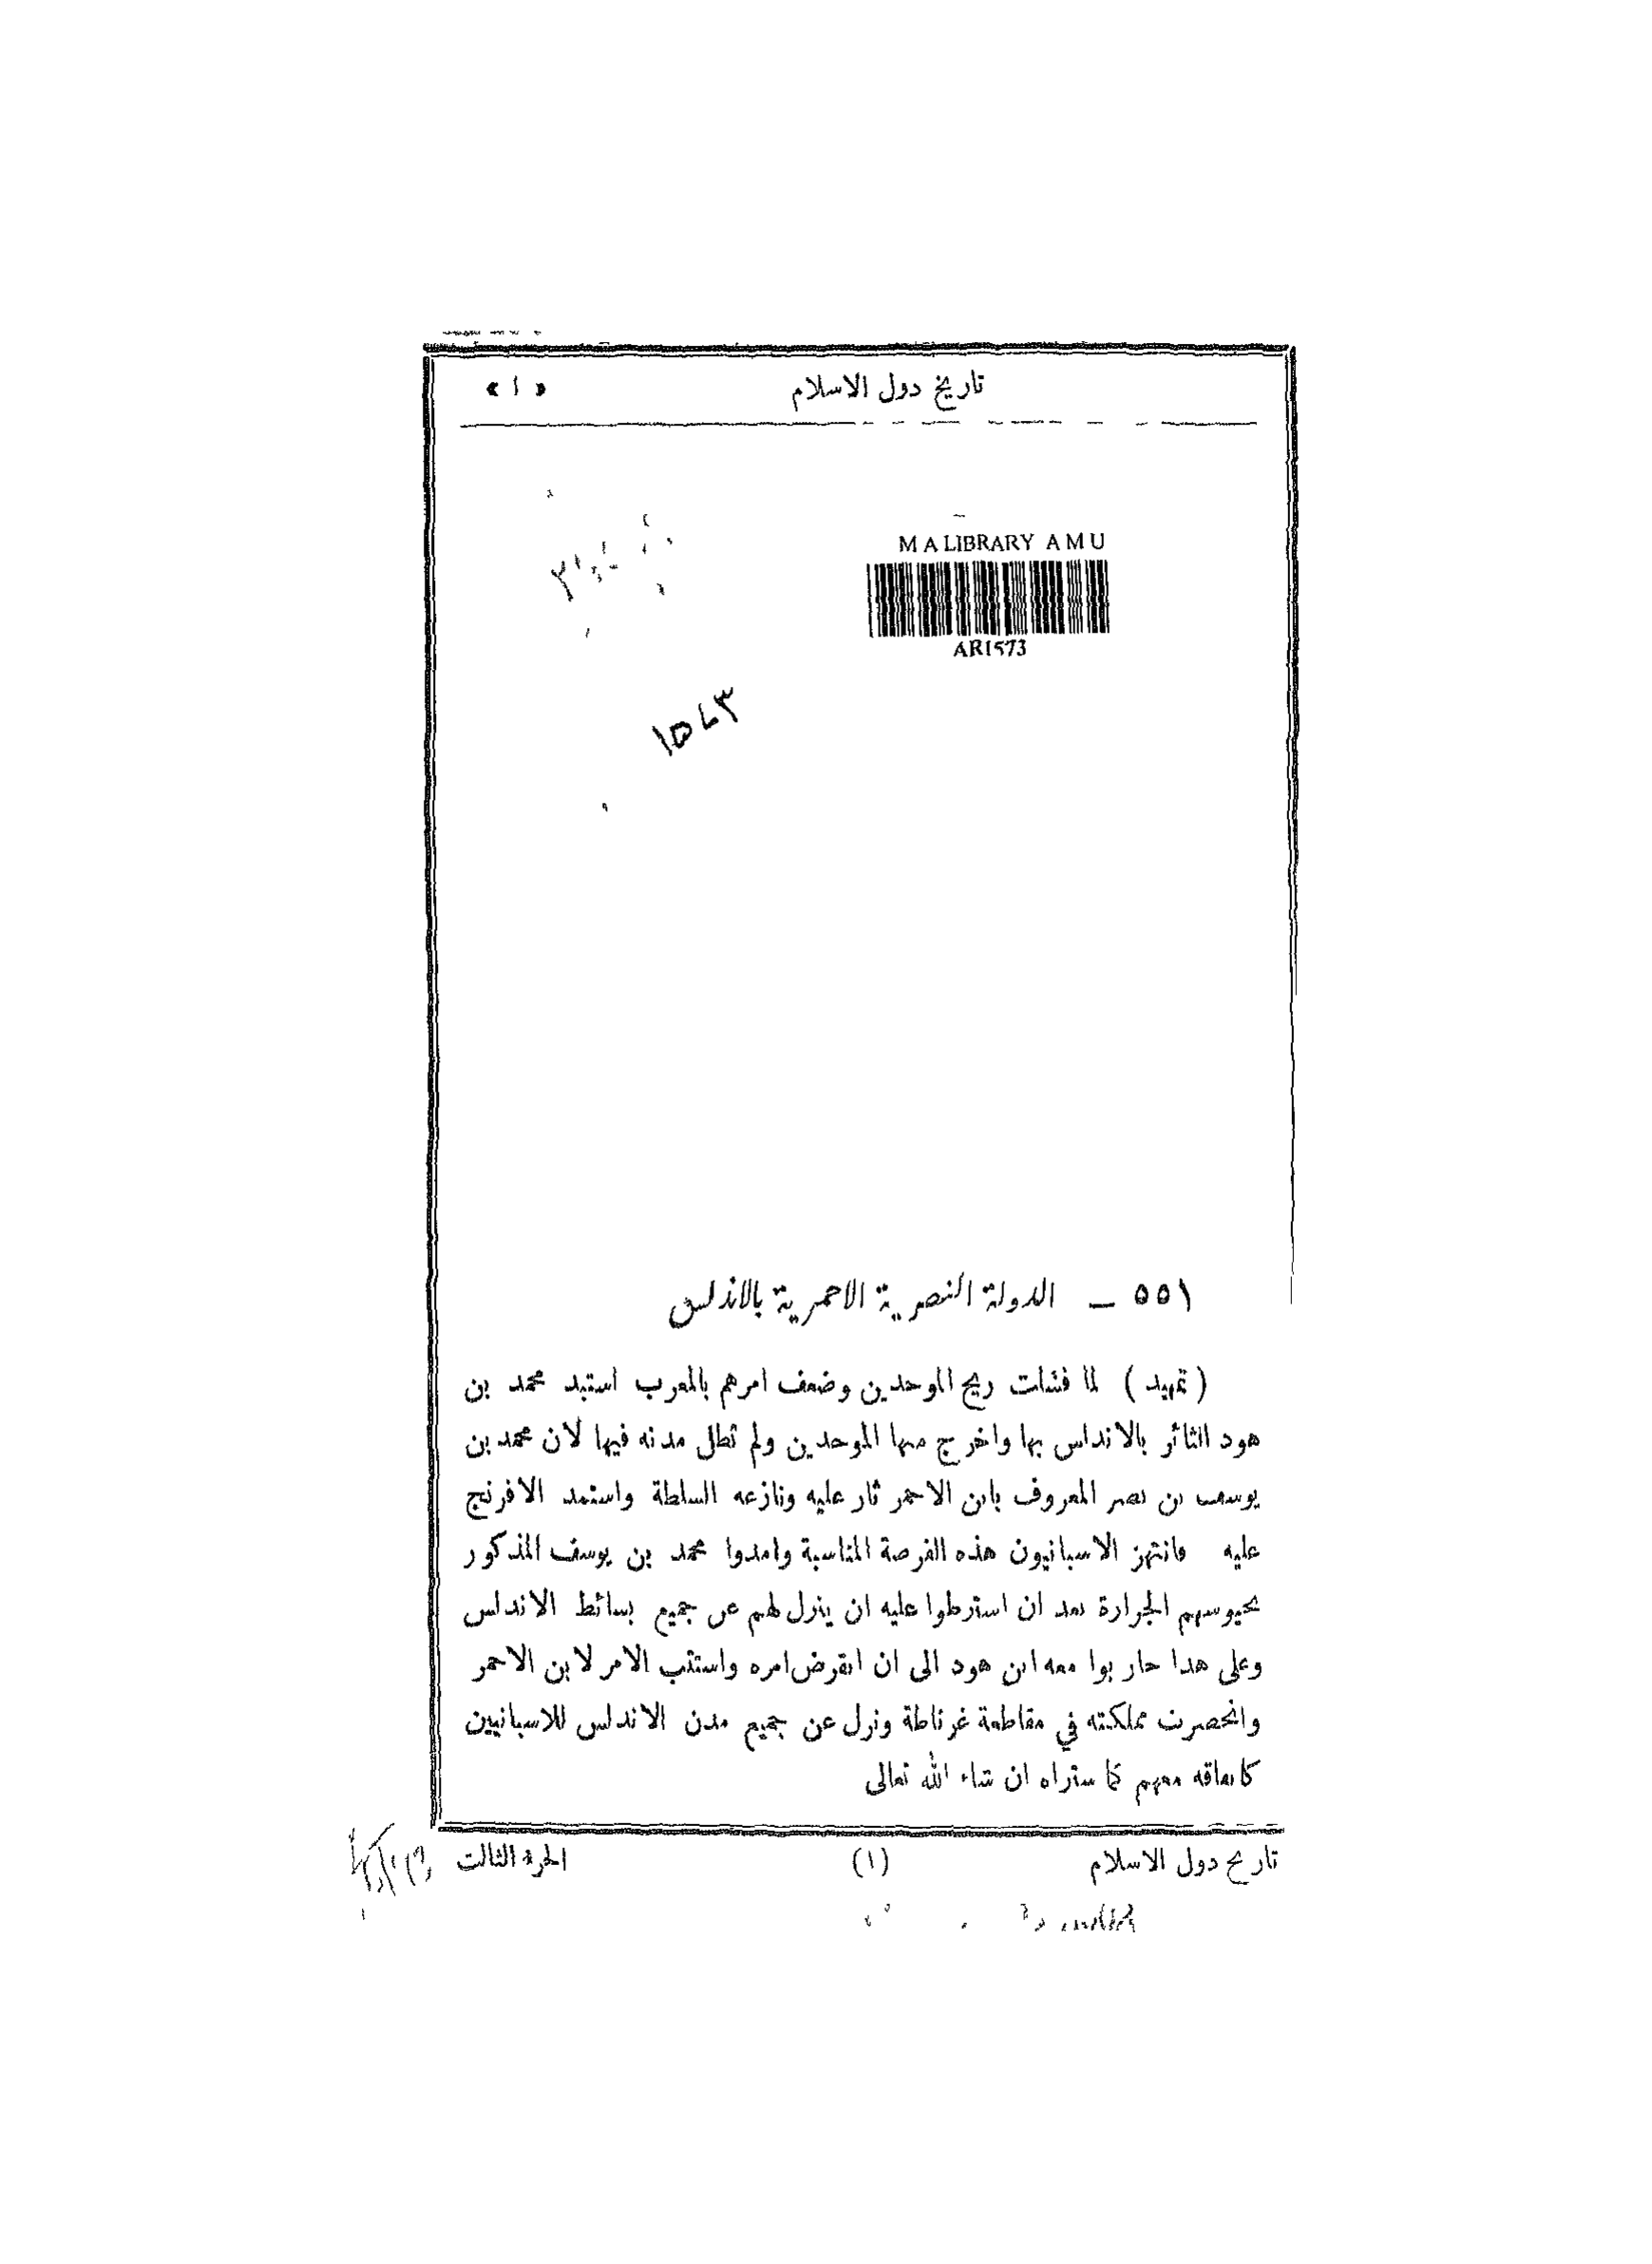 تاريخ دول الاسلام « ١ »
M A LIBRARY A M U
AR1573
١٥٧٣
٥٥١ — الدولة النصرية الاحمرية بالاندلس
( تمهيد ) لما فشلت ريح الموحدين وضعف امرهم بالمغرب استبد محمد بن
هود الثائر بالاندلس بها واخرج منها الموحدين ولم تطل مدته فيها لان محمد بن
يوسف بن نصر المعروف بابن الاحمر ثار عليه ونازعه السلطة واستمد الافرنج
عليه فانتهز الاسبانيون هذه الفرصة المناسبة وامدوا محمد بن يوسف المذكور
بجيوشهم الجرارة بعد ان اشترطوا عليه ان ينزل لهم عن جميع بسائط الاندلس
وعلى هذا حاربوا معه ابن هود الى ان انقرض امره واستتب الامر لابن الاحمر
وانحصرت مملكته في مقاطعة غرناطة ونزل عن جميع مدن الاندلس للاسبانيين
معهم كما ستراه ان شاء الله تعالى
تاريخ دول الاسلام (١) الجزء الثالث